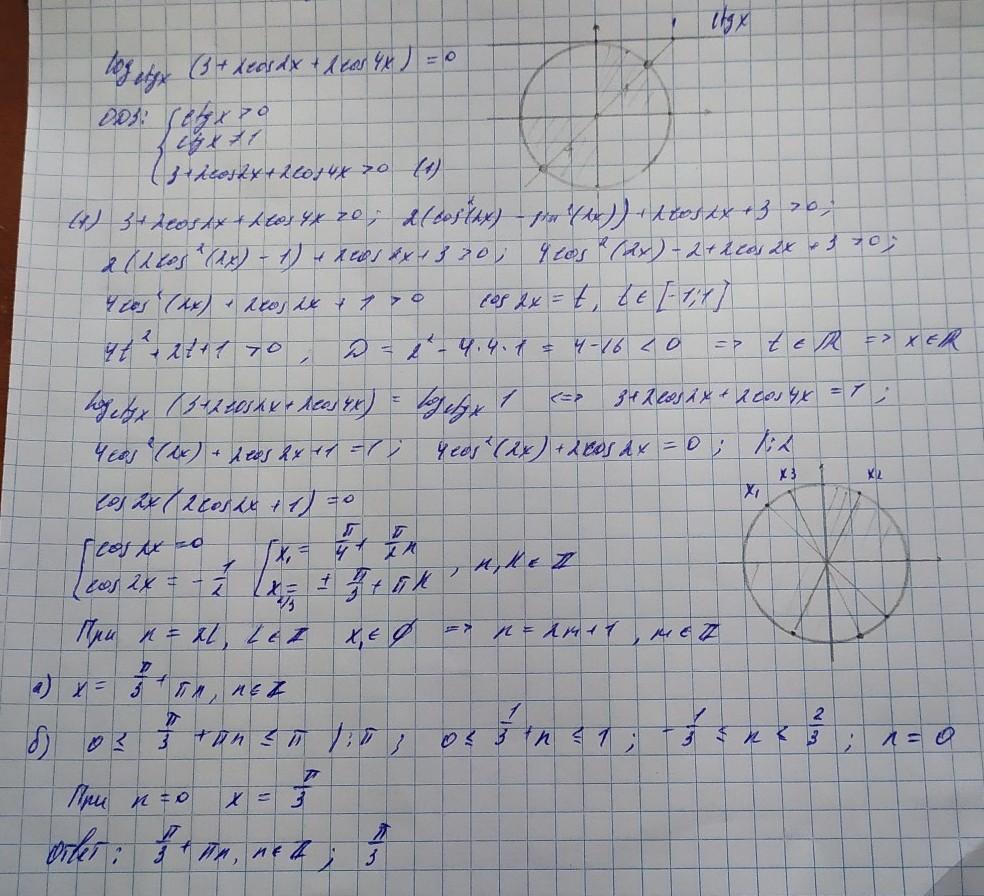 ctg x
log_ctgx (3+2cos2x+2cos4x) = 0
ОДЗ: { ctgx > 0
ctgx ≠ 1
3+2cos2x+2cos4x > 0 (1)
(1) 3+2cos2x+2cos4x > 0; 2(cos²(2x) - sin²(2x)) + 2cos2x + 3 > 0;
2(2cos²(2x) - 1) + 2cos2x + 3 > 0; 4cos²(2x) - 2 + 2cos2x + 3 > 0;
4cos²(2x) + 2cos2x + 1 > 0 cos2x = t, t ∈ [-1;1]
4t² + 2t + 1 > 0, D = 2² - 4·4·1 = 4 - 16 < 0 => t ∈ R => x ∈ R
log_ctgx (3+2cos2x+2cos4x) = log_ctgx 1 <=> 3+2cos2x+2cos4x = 1;
4cos²(2x) + 2cos2x + 1 = 1; 4cos²(2x) + 2cos2x = 0; |:2
cos2x(2cos2x + 1) = 0
x₁ x₃ x₂
[ cos2x = 0 [ x₁ = π/4 + π/2 n
cos2x = -1/2 x₂/₃ = ± π/3 + πk , n, k ∈ Z
При n = 2l, l ∈ Z x₁ ∈ ∅ => n = 2m+1, m ∈ Z
а) x = π/3 + πn, n ∈ Z
б) 0 ≤ π/3 + πn ≤ π |:π; 0 ≤ 1/3 + n ≤ 1; -1/3 ≤ n ≤ 2/3; n = 0
При n = 0 x = π/3
Ответ: π/3 + πn, n ∈ Z; π/3